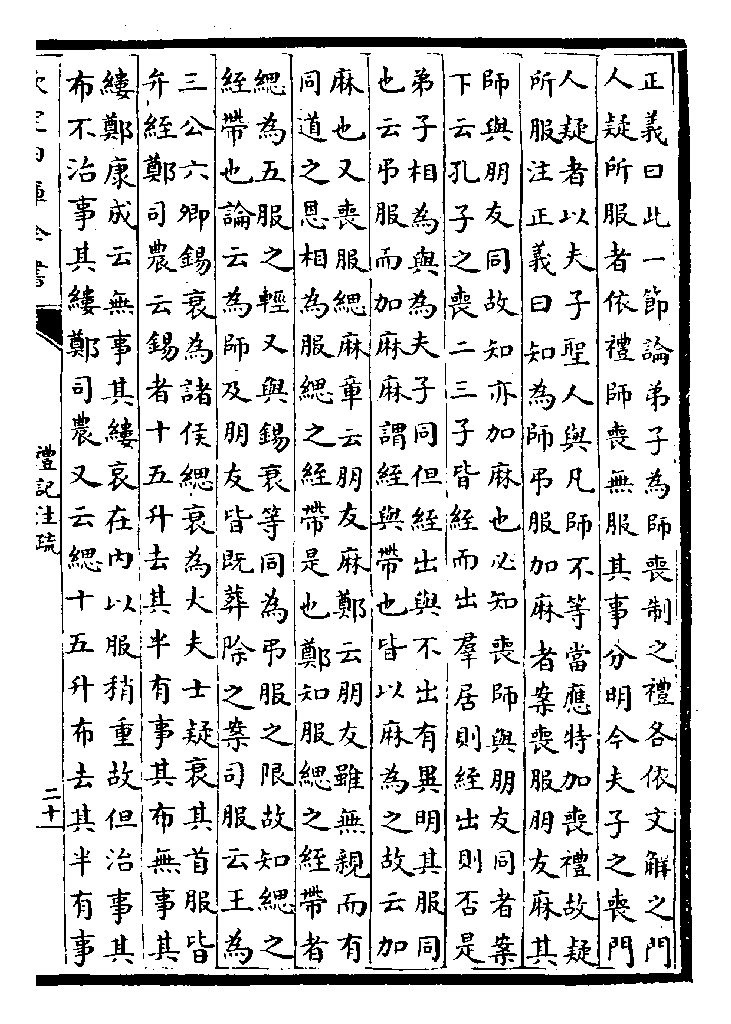 正義曰此一節論弟子為師喪制之禮各依文解之門
人疑所服者依禮師喪無服其事分明今夫子之喪門
人疑者以夫子聖人與凡師不等當應特加喪禮故疑
所服注正義曰知為師弔服加麻者案喪服朋友麻其
師與朋友同故知亦加麻也必知喪師與朋友同者案
下云孔子之喪二三子皆絰而出羣居則絰出則否是
弟子相為與為夫子同但絰出與不出有異明其服同
也云弔服而加麻麻謂絰與帶也皆以麻為之故云加
麻也又喪服緦麻章云朋友麻鄭云朋友雖無親而有
同道之恩相為服緦之絰帶是也鄭知服緦之絰帶者
緦為五服之輕又與錫衰等同為弔服之限故知緦之
絰帶也論云為師及朋友皆既葬除之案司服云王為
三公六卿錫衰為諸侯緦衰為大夫士疑衰其首服皆
弁絰鄭司農云錫者十五升去其半有事其布無事其
縷鄭康成云無事其縷哀在內以服稍重故但治事其
布不治事其縷鄭司農又云緦十五升布去其半有事
欽定四庫全書
禮記注疏
二十